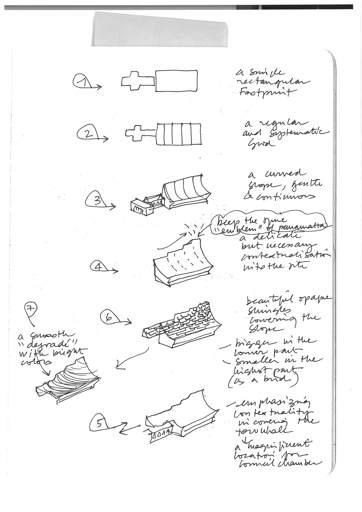 1
a single
rectangular
Footprint
2
a regular
and systematic
Grid
3
a curved
slope, gentle
& continuous
keep the open
"emblem" of
a delicate
but necessary
contextualisation
into the site
4
7
a smooth
"degradé"
with bright
colors
6
beautiful opaque
shingles
covering the
slope
- bigger in the
lower part
- smaller in the
highest part
(as a bird)
5
- emphasizing
contextuality
in covering the
townhall
a magnificent
location for
council chamber